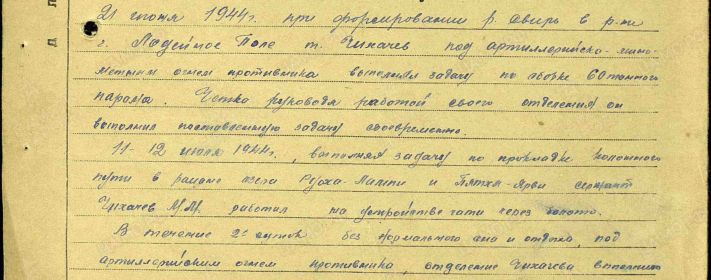 21 июня 1944г. при форсировании р. Свирь в р-не
г. Лодейное Поле т. Чихачев под артиллерийско-мино-
метным огнем противника выполнял задачу по сборке 60 тонного
парома. Четко руководя работой своего отделения он
выполнил поставленную задачу своевременно.
11-12 июля 1944г., выполняя задачу по прокладке колонного
пути в районе озера Руока-Лампи и Пятка-Ярви сержант
Чихачев М.М. работал на устройстве гати через болото.
В течение 2х суток без нормального сна и отдыха, под
артиллерийским огнем противника, отделение Чихачева выполнило